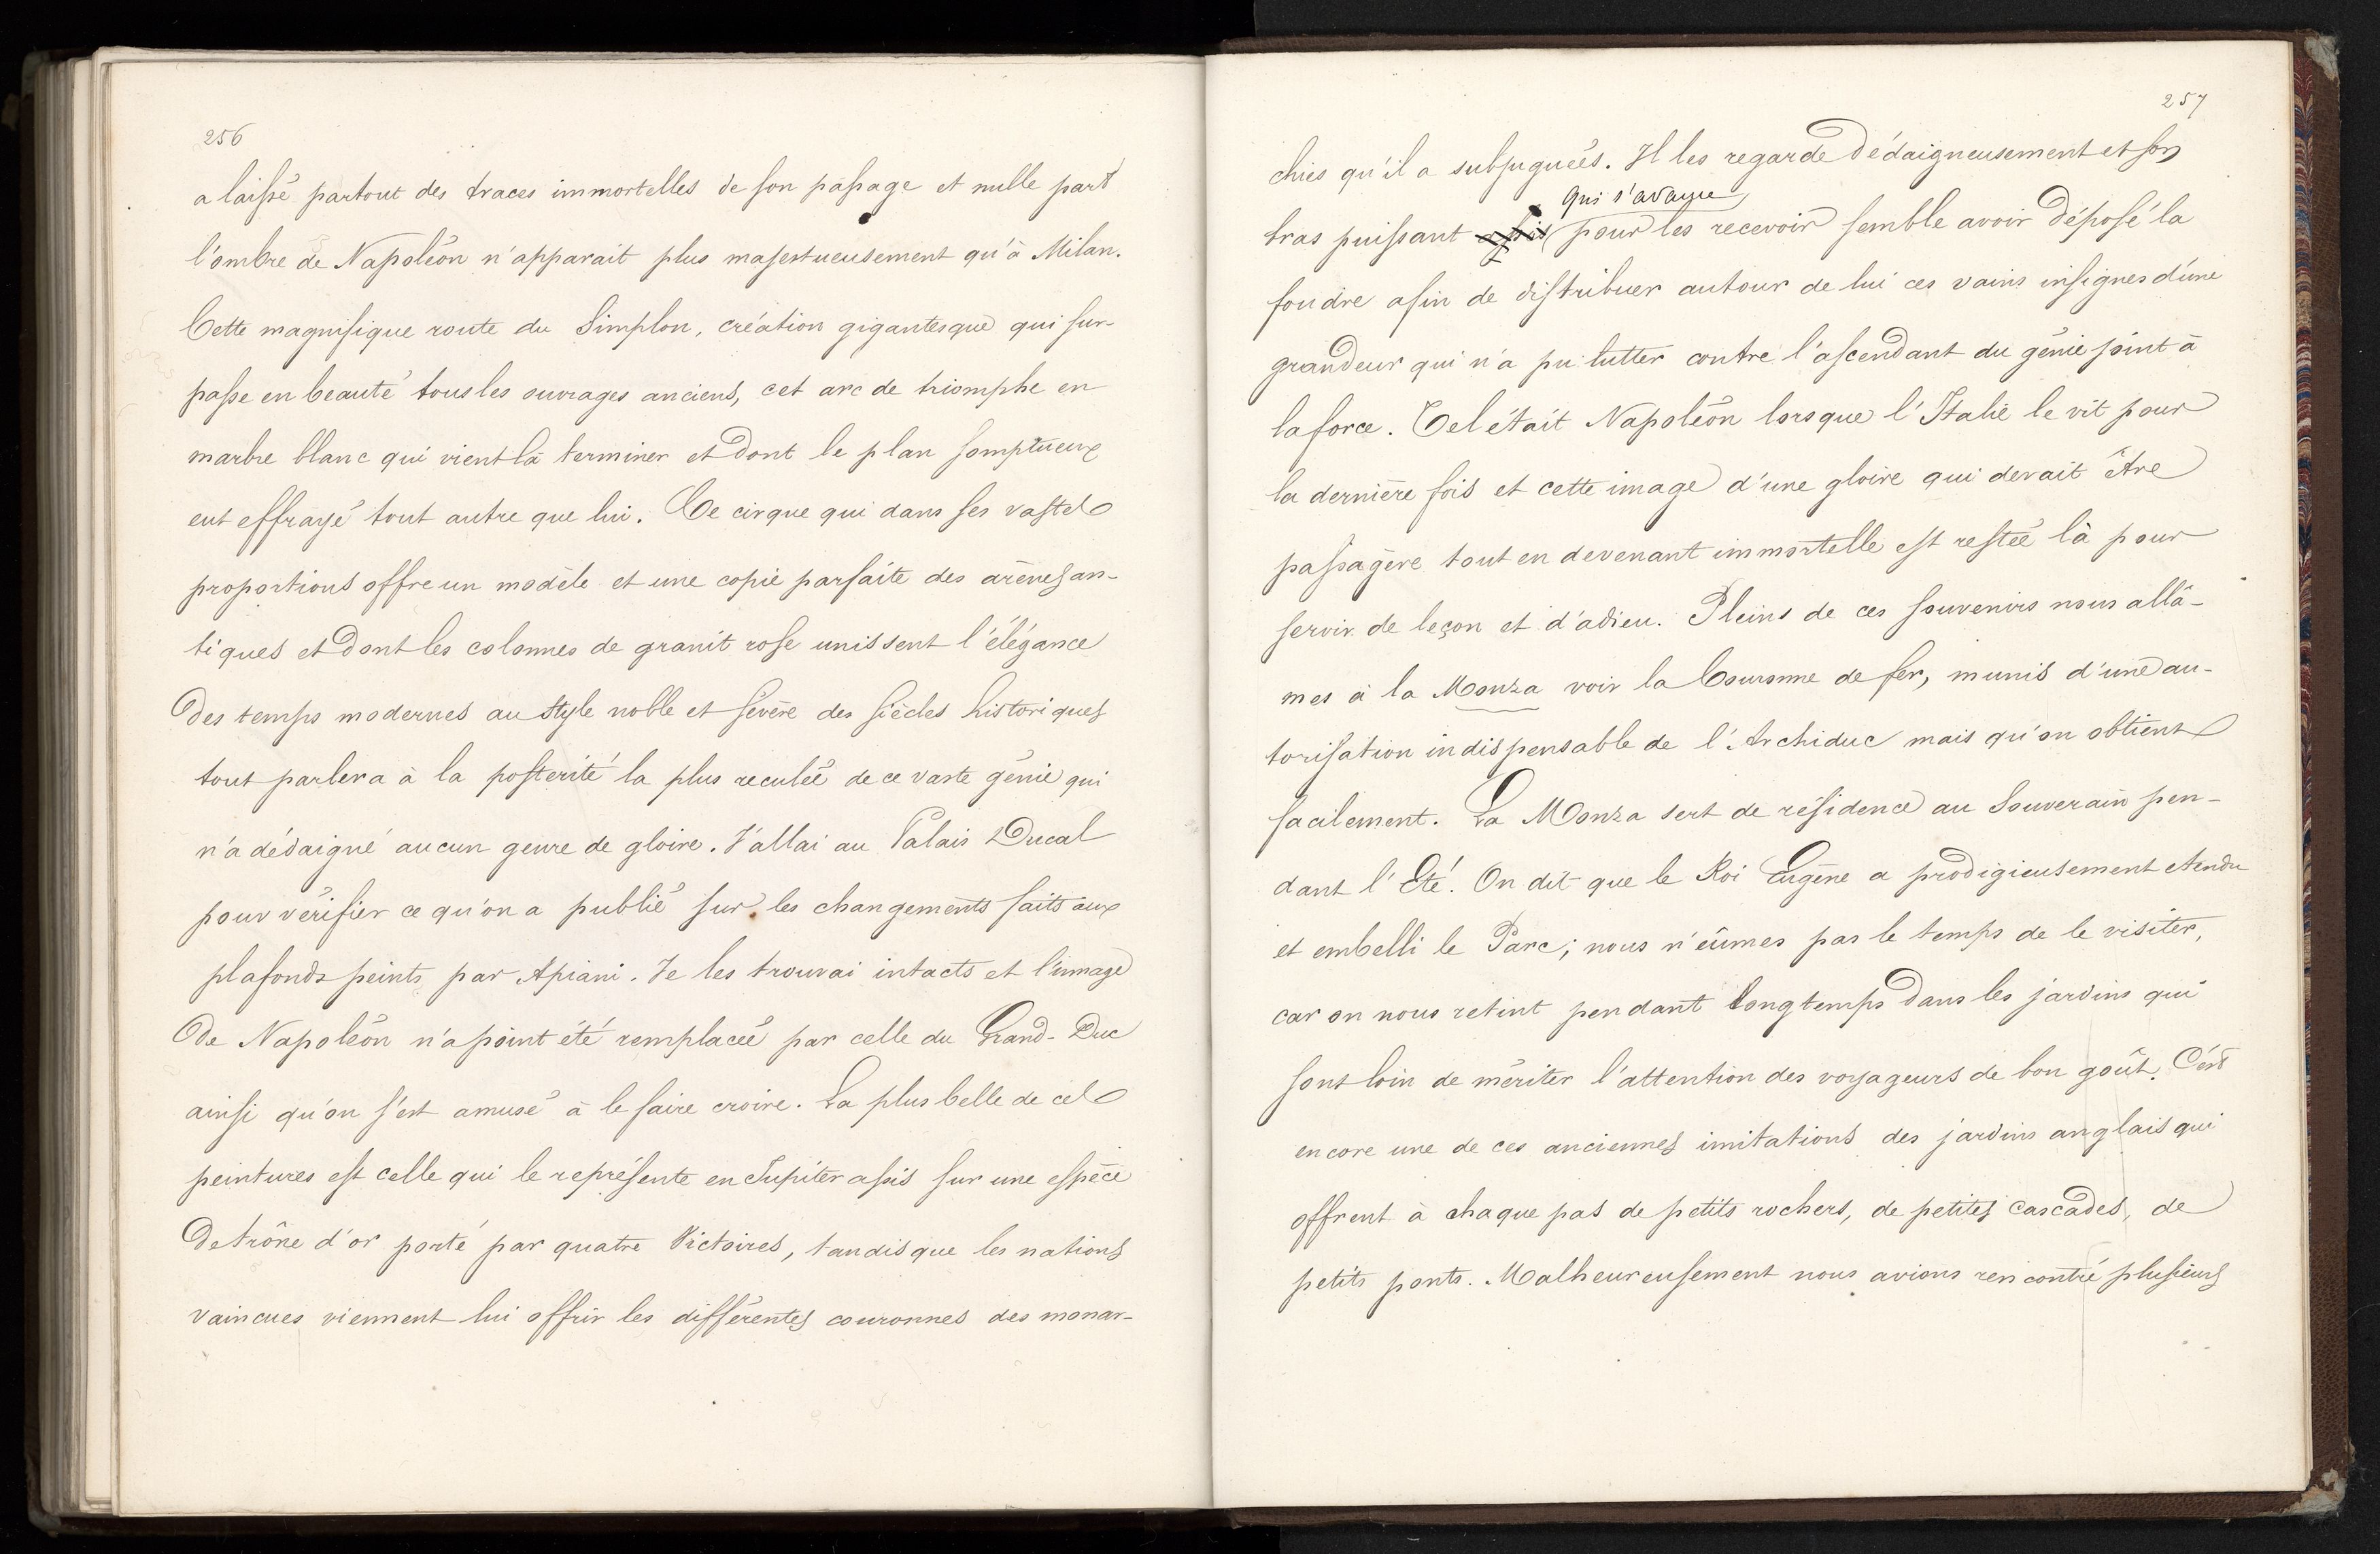 256
a laissé partout des traces immortelles de son passage et nulle part
l'ombre de Napoléon n'apparait plus majestueusement qu'à Milan.
Cette magnifique route du Simplon, création gigantesque qui sur-
passe en beauté tous les ouvrages anciens, cet arc de triomphe en
marbre blanc qui vient la terminer et dont le plan somptueux
eut effrayé tout autre que lui. Ce cirque qui dans ses vastes
proportions offre un modèle et une copie parfaite des arènes an-
tiques et dont les colonnes de granit rose unissent l'élégance
des temps modernes au style noble et sévère des siècles historiques
tout parlera à la postérité la plus reculée de ce vaste génie qui
n'a dédaigné aucun genre de gloire. J'allai au Palais Ducal
pour vérifier ce qu'on a publié sur les changements faits aux
plafonds peints par Apiani. Je les trouvai intacts et l'image
de Napoléon n'a point été remplacée par celle du Grand-Duc
ainsi qu'on s'est amusé à le faire croire. La plus belle de ces
peintures est celle qui le représente en Jupiter assis sur une espèce
de trône d'or porté par quatre Victoires, tandis que les nations
vaincues viennent lui offrir les différentes couronnes des monar-
257
chies qu'il a subjuguées. Il les regarde dédaigneusement et son
qui s'avance
bras puissant pour les recevoir semble avoir déposé la
foudre afin de distribuer autour de lui ces vains insignes d'une
grandeur qui n'a pu lutter contre l'ascendant du génie joint à
la force. Tel était Napoléon lorsque l'Italie le vit pour
la dernière fois et cette image d'une gloire qui devait être
passagère tout en devenant immortelle est restée là pour
servir de leçon et d'adieu. Pleins de ces souvenirs nous allâ-
mes à la Monza voir la Couronne de fer, munis d'une au-
torisation indispensable de l'Archiduc mais qu'on obtient
facilement. La Monza sert de résidence au Souverain pen-
dant l'Eté. On dit que le Roi Eugène a prodigieusement etendu
et embelli le Parc; nous n'eûmes pas le temps de le visiter,
car on nous retint pendant longtemps dans les jardins qui
sont loin de mériter l'attention des voyageurs de bon goût. C'est
encore une de ces anciennes imitations des jardins anglais qui
offrent à chaque pas de petits rochers, de petites cascades, de
petits ponts. Malheureusement nous avions rencontré plusieurs